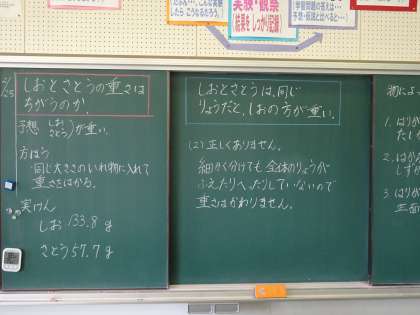 実験・観察
(結果をしっかり記録)
2/25
しおとさとうの重さは
ちがうのか。
予想 しお さとう)が重い。
方ほう
同じ大きさのいれ物に入れて
重さをはかる。
実けん
しお 133.8g
さとう 57.7g
しおとさとうは、同じ
りょうだと、しおの方が重い。
(2) 正しくありません。
細かく分けても全体のりょうが
ふえたりへったりしていないので
重さはかわりません。
物によ
1. はり
2. はか
しずか
3. はりが
正面